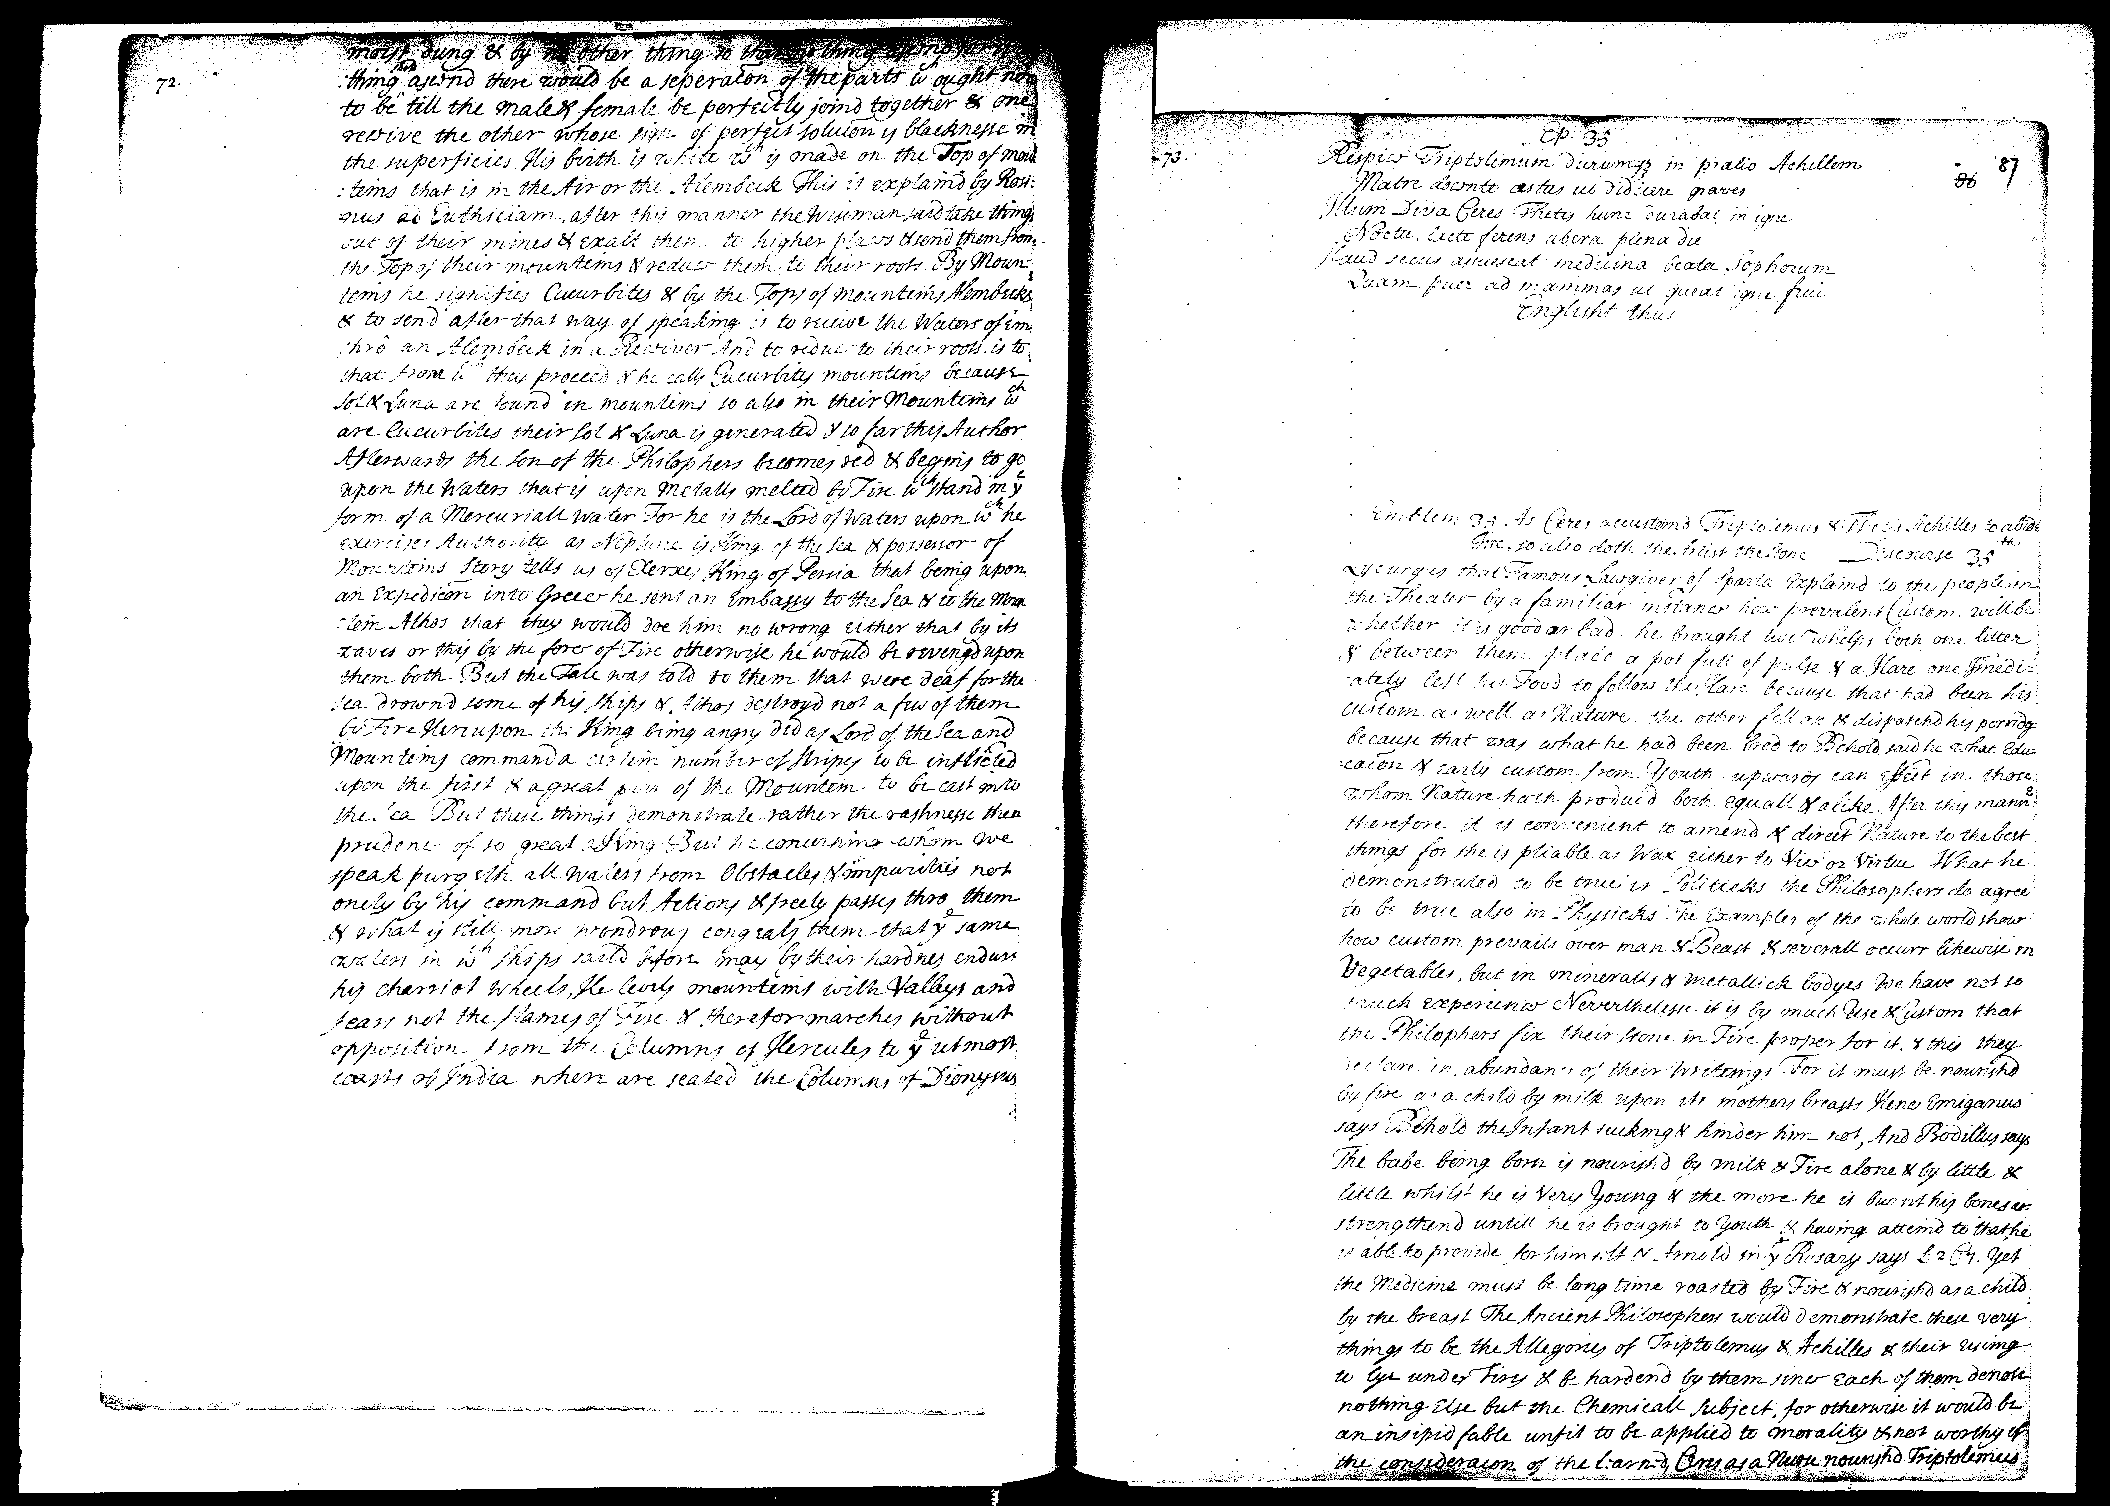 72.
moist dung & by no other thing so that
thing ascend there would be a seperacon of the parts wch ought not
to be till the male & female be perfectly joind together & one
receive the other whose sign of perfect solucon is blacknesse in
the superficies His birth is white wch is made on the Top of moun
:teins that is in the Air or the Alembeck This is explaind by Rosi:
:nus ad Euthiciam after this manner the Wiseman said take things
out of their mines & exalt them to higher places & send them from
the Top of their mounteins & reduce them to their roots By Moun:
teins he signifies Cucurbites & by the Tops of mounteins Alembicks
& to send after that way of speaking is to receive the Waters of em
thrô an Alembeck in a Receiver And to reduce to their roots is to
that from wch they proceed & he calls Cucurbites mounteins because
Sol & Luna are found in mounteins so also in their Mounteins wch
are Cucurbites their Sol & Luna is generated & so far this Author
Afterwards the son of the Philosphers becomes red & begins to go
upon the Waters that is upon Metalls melted by Fire wch stand in ye
form of a Mercuriall water For he is the Lord of Waters upon wch he
exercises Authority as Neptune is King of the Sea & possessor of
Mounteins Story tells us of Xerxes King of Persia that being upon
an Expedicon into Greece he sent an Embassy to the Sea & to the Moun
:tein Athos that they would doe him no wrong either that by its
waves or this by the force of Fire otherwise he would be revengd upon
them both But the Tale was told to them that were deaf for the
Sea drownd some of his ships & Athos destroyd not a few of them
by Fire Hereupon the King being angry did as Lord of the Sea and
Mounteins command a certein number of stripes to be inflicted
upon the first & a great part of the Mountein to be cast into
the Sea But these things demonstrate rather the rashnesse then
prudence of so great a King But he concerning whom we
speak purgeth all waters from Obstacles & impurities not
onely by his command but Actions & freely passes thro them
& what is still more wondrous congeals them that ye same
waters in wch ships saild before may by their hardnes endure
his charriot wheels, He levels mounteins with Valleys and
fears not the flames of Fire & therefor marches without
opposition from the Columns of Hercules to ye utmost
coasts of India where are seated the Columns of Dionysus
73.
EP 35
86 87
Respice Triptolemum durumq3 in prælio Achillem
Matre docente æstus ut didicere graves
Illum Diva Ceres Thetis hunc durabat in igne
Noctu, lacte ferens ubera plena die
Haud secus assuescat medicina beata Sophorum
Quam puer ad mammas ut queat igne frui
Englisht thus
Emblem 35. As Ceres accustomd Triptolemus & Thetis Achilles to abide
Fire, so also doth the Artist the stone Discourse 35th
Lycurgus that Famous Lawgiver of Sparta Explaind to the people in
the Theater by a familiar instance how prevalent Custom will be
whether it is good or bad. he brought two whelps both one litter
& between them place a pot full of pulse & a Hare one Imedi:
:ately left his Food to follow the Hare because that had been his
custom as well as Nature. the other fell on & dispatchd his porridg
because that was what he had been bred to Behold said he what Edu
:cacon & early custom from Youth upwards can effect in those
whom Nature hath producd both equall & alike After this manner
therefore it is convenient to amend & direct Nature to the best
things for she is pliable as Wax either to Vice or Virtue What he
demonstrated to be true in Politicks the Philosophers do agree
to be true also in Physicks The Examples of the whole world show
how custom prevails over man & Beast & severall occurr likewise in
Vegetables, but in mineralls & metallick bodyes We have not so
much experience Neverthelesse it is by much Use & Custom that
the Philosphers fix their stone in Fire proper for it. & this they
declare in abundance of their Writeings For it must be nourishd
by fire as a child by milk upon its mothers breasts Hence Emiganus
says Behold the Infant sucking & hinder him not, And Bodillus says
The babe being born is nourish'd by milk & Fire alone & by little &
little whilst he is Very Young & the more he is burnt his bones are
strengthend untill he is brought to Youth & having atteind to that, he
is able to provide for himself & Arnold in ye Rosary says L2 C7. Yet
the Medicine must be long time roasted by Fire & nourishd as a child
by the breast The Ancient Philosophers would demonstrate these very
things to be the Allegories of Triptolemus & Achilles & their using
to lye under Fires & be hardend by them since Each of them denote
nothing Else but the Chemicall subject, for otherwise it would be
an insipid fable unfit to be applied to morality & not worthy of
the consideracon of the learnd, Ceres as a Nurse nourishd Triptolemus